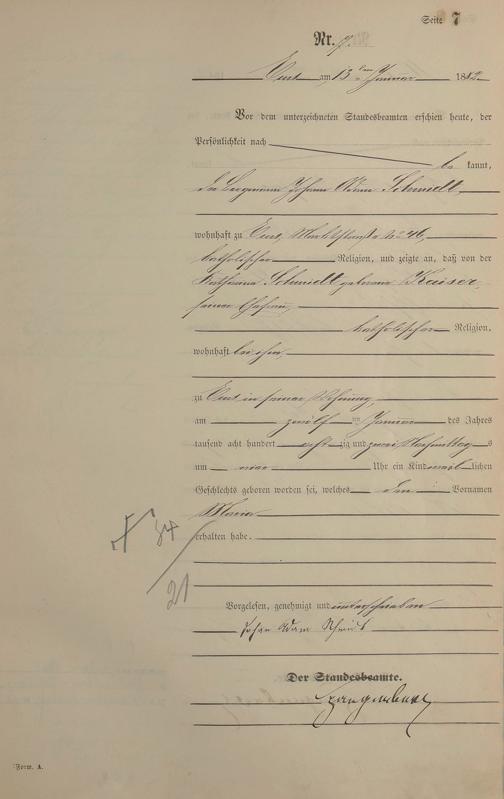 Seite 7
Nr. 7.
Ems am 13ten Januar 1882
Vor dem unterzeichneten Standesbeamten erschien heute, der
Persönlichkeit nach
be kannt,
der Bergmann Johann Adam Schmidt,
wohnhaft zu Ems, Marktstraße No 46,
katholischer Religion, und zeigte an, daß von der
Katharina Schmidt geborene Kaiser,
seiner Ehefrau,
katholischer Religion,
wohnhaft bei ihm,
zu Ems in seiner Wohnung,
am zwölf ten Januar des Jahres
tausend acht hundert acht zig und zwei Nachmittag s
um Uhr ein Kind weib lichen
Geschlechts geboren worden sei, welches den Vornamen
Maria
erhalten habe.
† 34
21
Vorgelesen, genehmigt und unterschrieben
Johan Adam Schmidt
Der Standesbeamte.
Form. A.